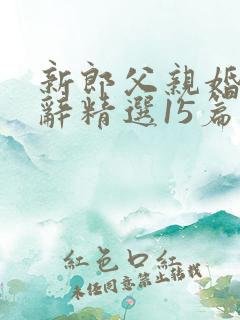 新郎父親婚
辭精選15篇
紅色口紅
未經同意禁止轉載